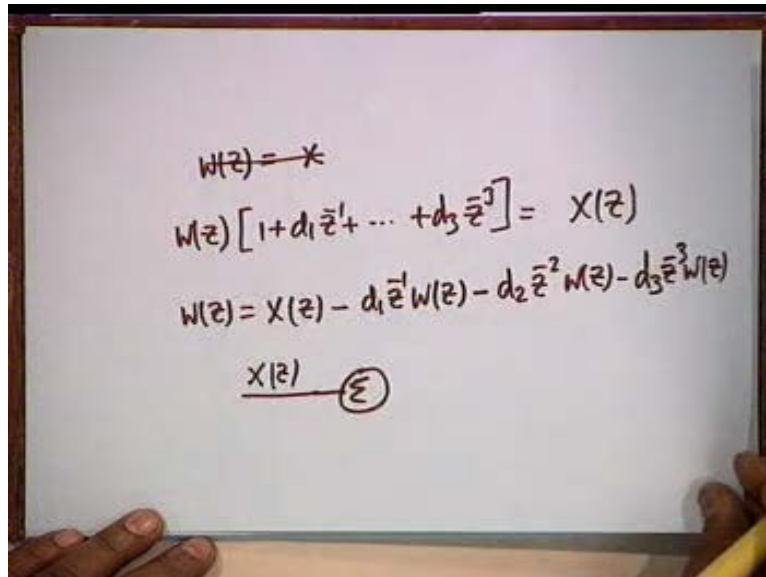 W(z) = X
W(z) [1 + d₁ z⁻¹ + ... + d₃ z⁻³] = X(z)
W(z) = X(z) − d₁ z⁻¹ W(z) − d₂ z⁻² W(z) − d₃ z⁻³ W(z)
X(z) Σ